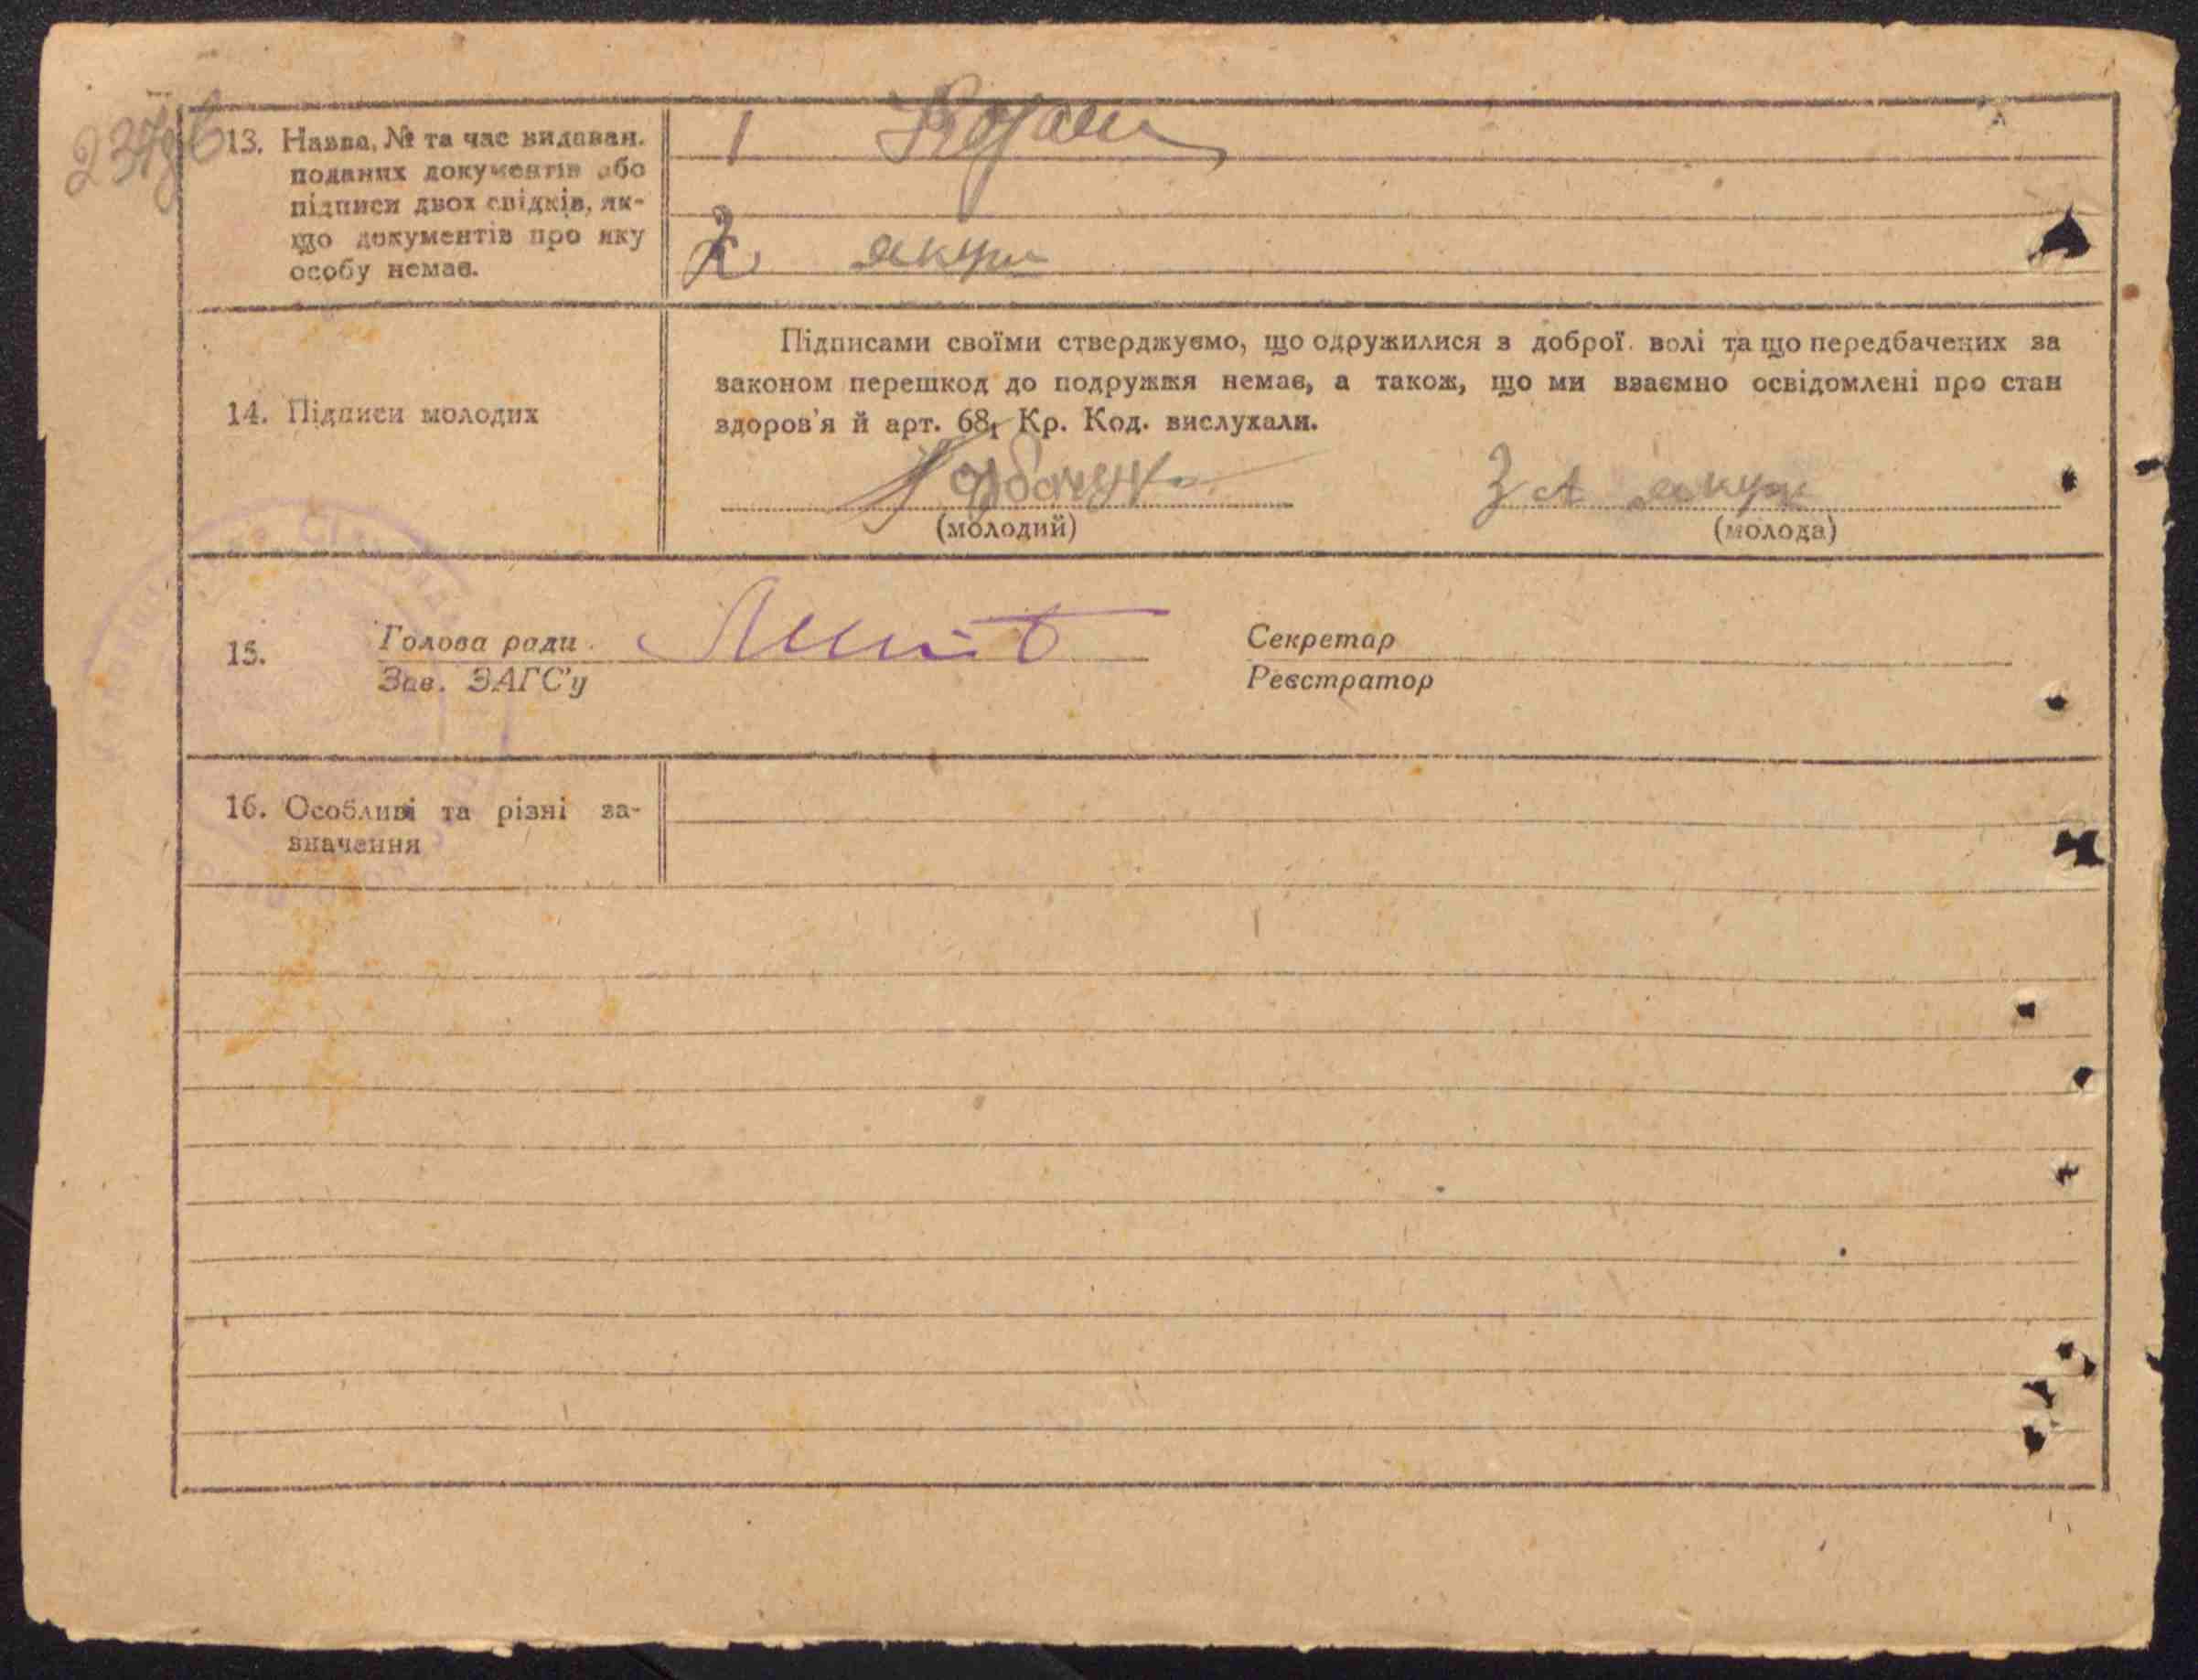 13. Назва, № та час видаван.
поданих документів або
підписи двох свідків, як-
що документів про яку
особу немає.
1
2 якуш
14. Підписи молодих
Підписами своїми стверджуємо, що одружилися з доброї волі та що передбачених за
законом перешкод до подружжя немає, а також, що ми взаємно освідомлені про стан
здоров'я й арт. 68, Кр. Код. вислухали.
Горбачук
За якуш
(молодий) (молода)
15. Голова ради Секретар
Зав. ЗАГС'у Реєстратор
16. Особливі та різні за-
значення